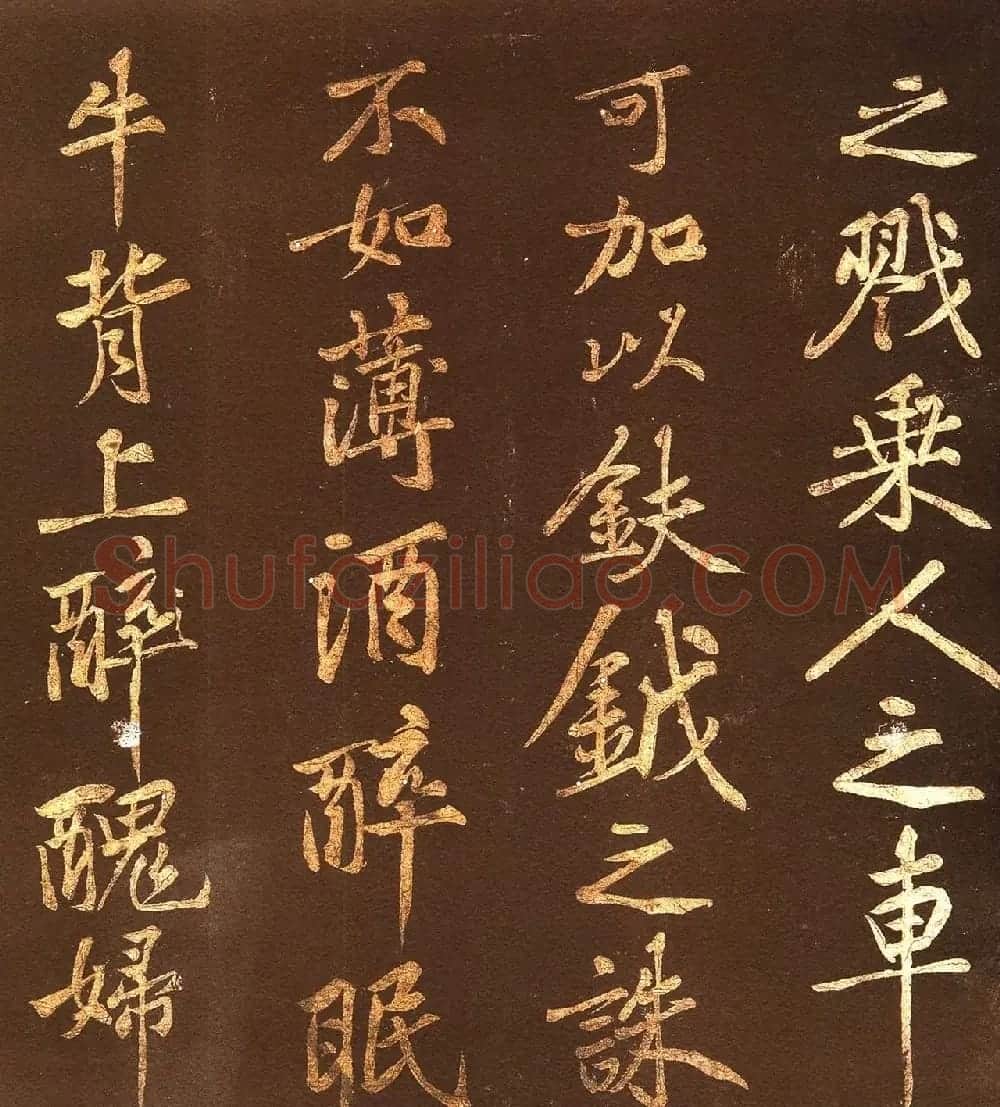 之戮乗人之車
可加以鈇鉞之誅
不如薄酒醉眠
牛背上醉醜婦
Shufaziliao.COM